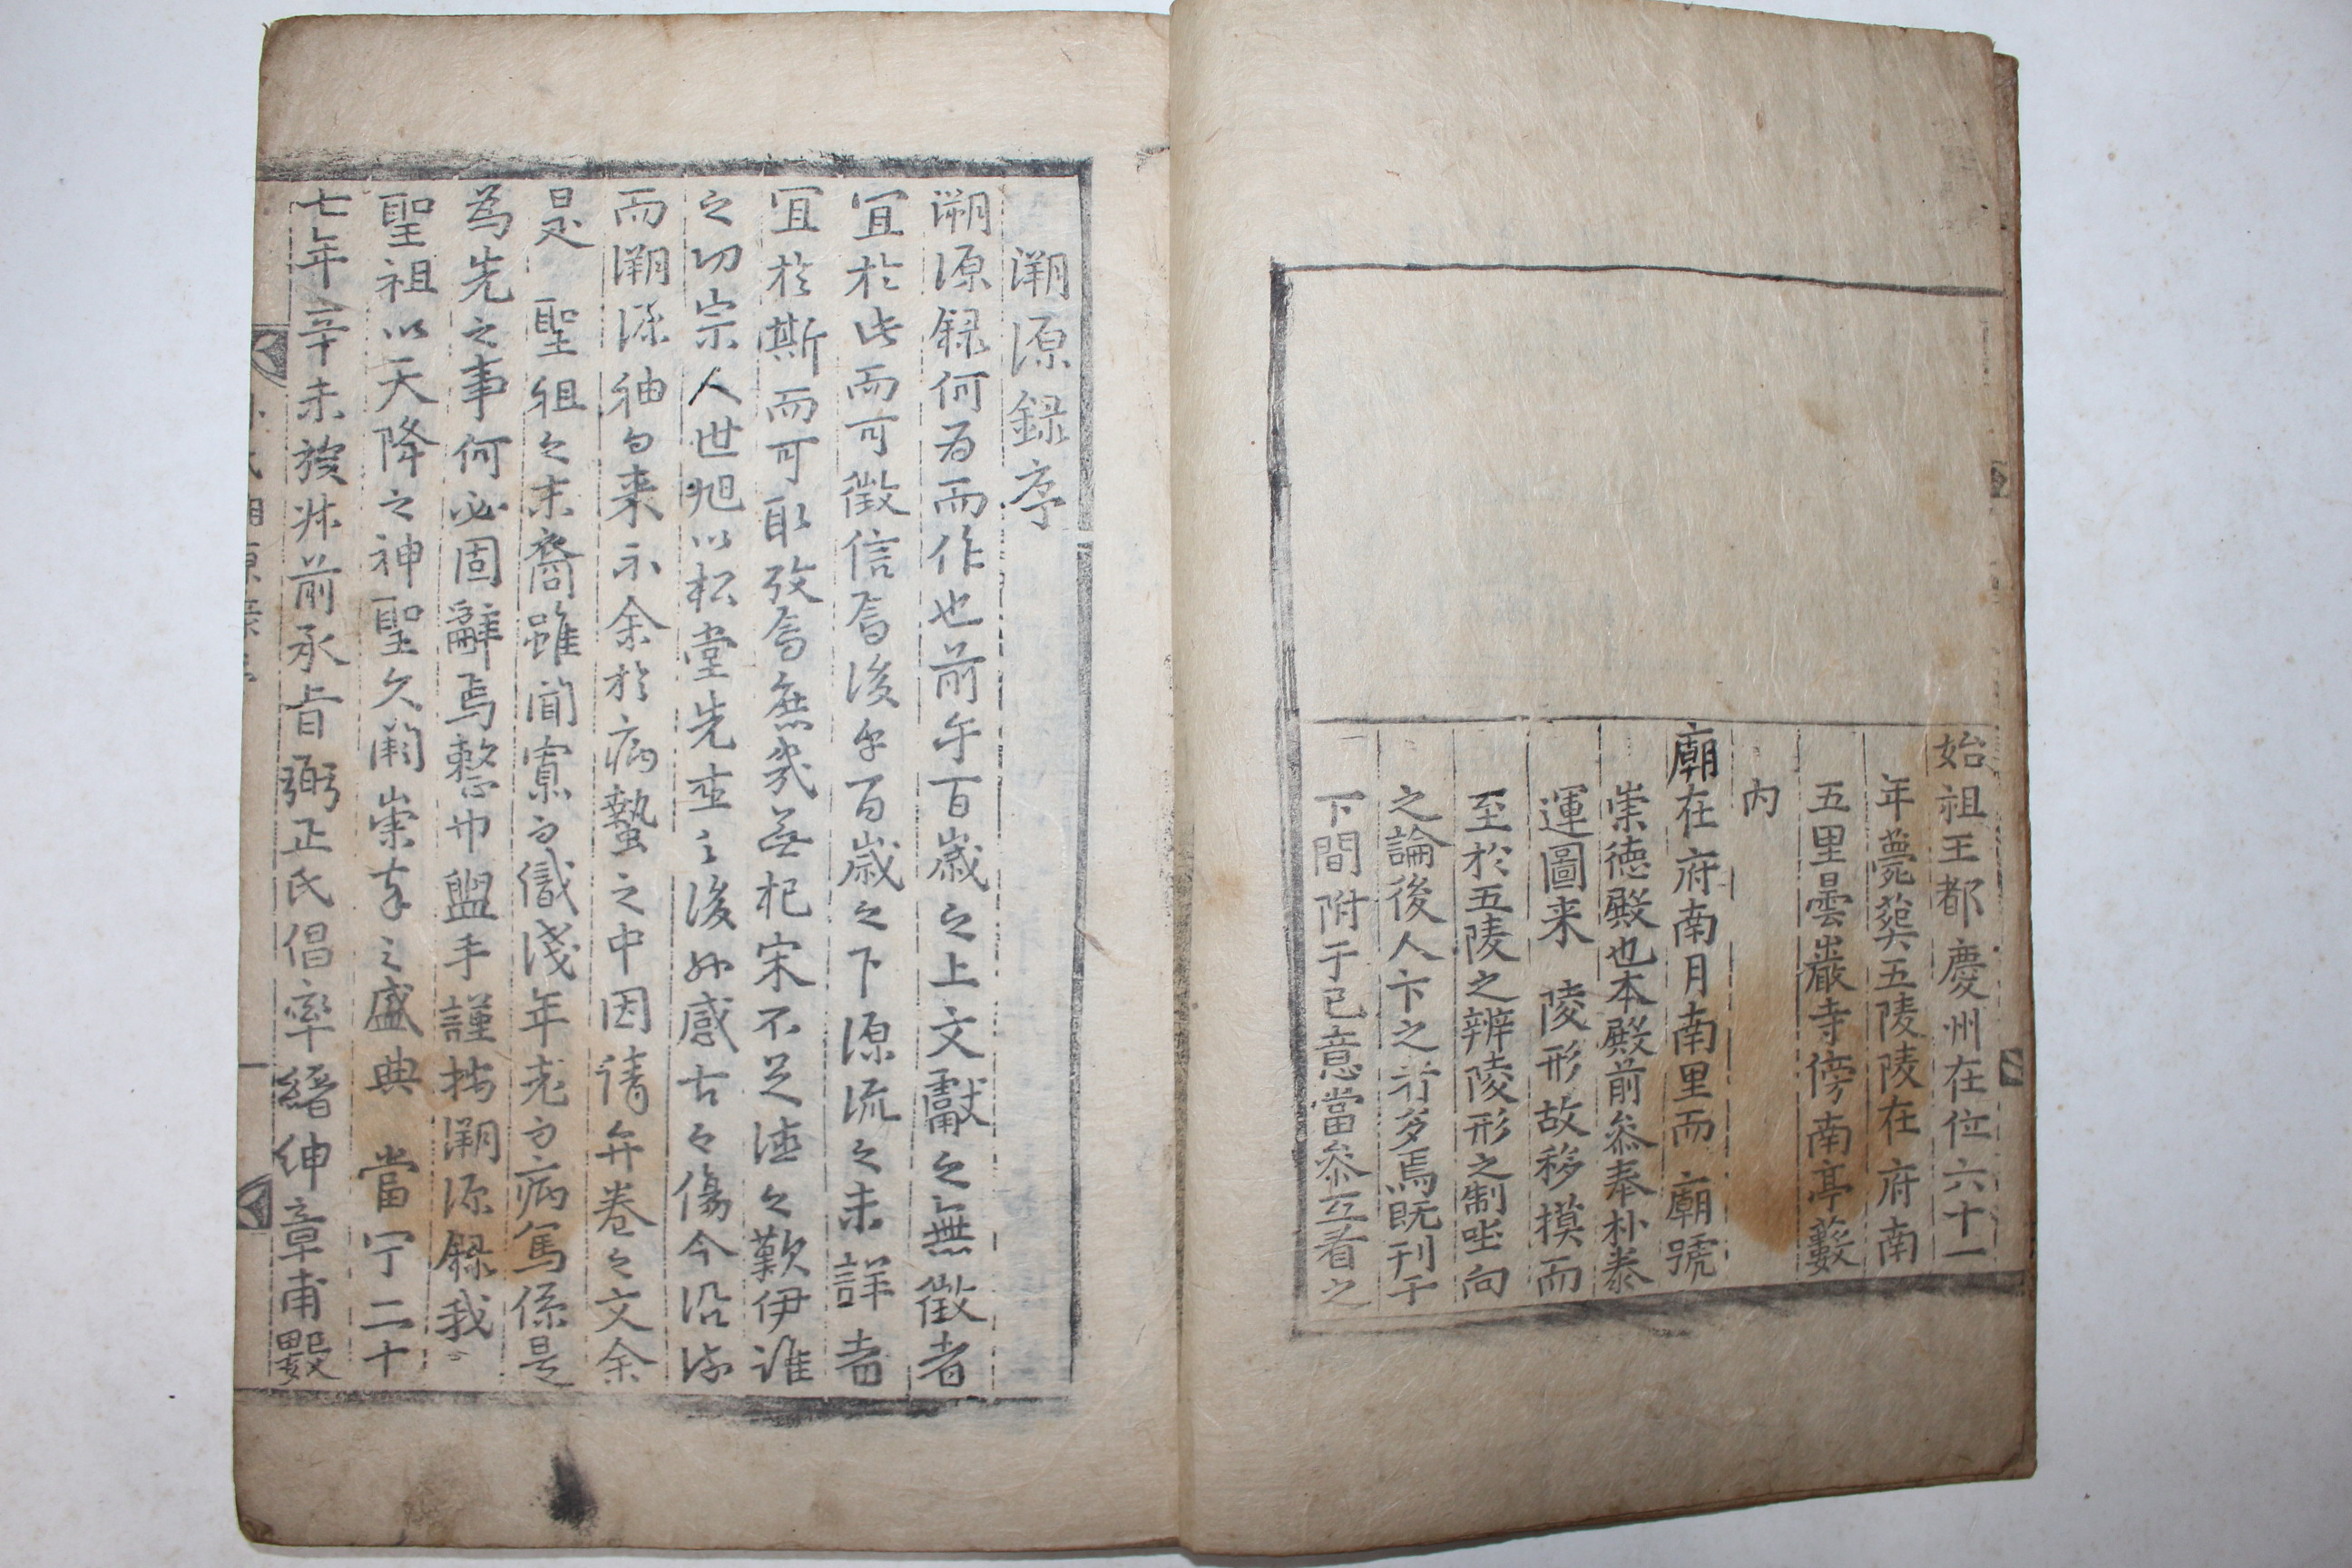 始祖王都慶州在位六十一
年薨葬五陵陵在府南
五里曇巖寺傍南亭藪
內
廟在府南月南里而廟號
崇德殿也本殿前叅奉朴泰
運圖来陵形故移摸而
至於五陵之辨陵形之制坐向
之論後人卞之者多焉既刊于
下間附于已意當叅互看之
溯源録序
溯源録何为而作也前乎百歲之上文獻之無徵者
宜於此而可徵信焉後乎百歲之下源流之未詳者
宜於斯而可取攷焉庶幾無杞宋不足徵之歎伊誰
之功宗人世旭以松堂先生之後孫感古之傷今沿流
而溯源袖而来示余於病蟄之中因请弁卷之文余
是聖祖之末裔雖聞寡而識淺年老而病篤係是
為先之事何必固辭焉整巾盥手謹按溯源録我
聖祖以天降之神聖久闕崇奉之盛典當宁二十
七年辛未族弟前承旨弼正氏倡率縉紳章甫數